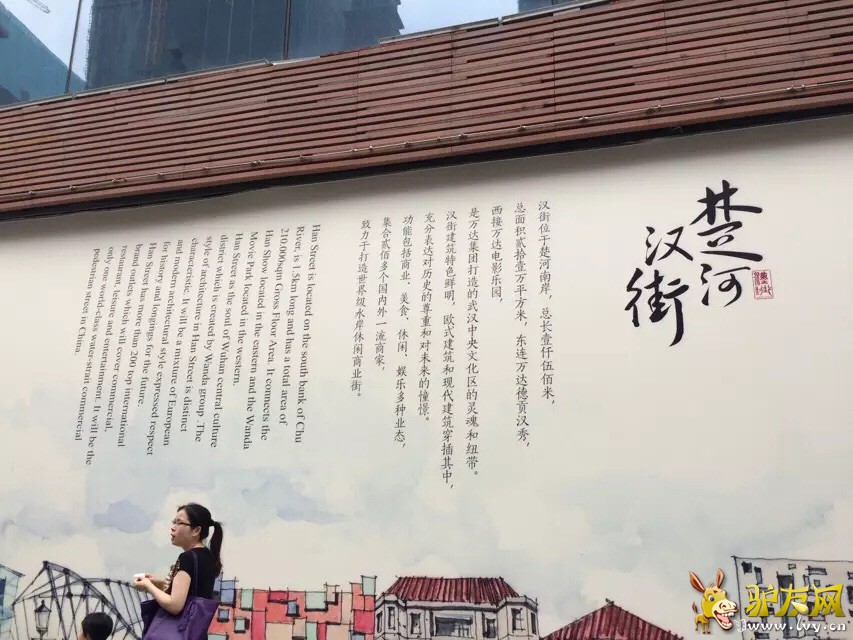 楚河
汉街
汉街位于楚河南岸，总长壹仟伍佰米，
总面积贰拾壹万平方米，东连万达德贡汉秀，
西接万达电影乐园，
是万达集团打造的武汉中央文化区的灵魂和纽带。
汉街建筑特色鲜明，欧式建筑和现代建筑穿插其中，
充分表达对历史的尊重和对未来的憧憬。
功能包括商业、美食、休闲、娱乐多种业态，
集合贰佰多个国内外一流商家，
致力于打造世界级水岸休闲商业街。
Han Street is located on the south bank of Chu
River, is 1.5km long and has a total area of
210.000sqm Gross Floor Area. It connects the
Han Show located in the eastern and the Wanda
Movie Park located in the western.
Han Street as the soul of Wuhan central culture
district which is created by Wanda group .The
style of architecture in Han Street is distinct
characteristic. It will be a mixture of European
and modern architectural style expressed respect
for history and longings for the future.
Han Street has more than 200 top international
brand outlets which will cover commercial,
restaurant, leisure and entertainment. It will be the
only one world-class water-strait commercial
pedestrian street in China.
驴友网
www.lvy.cn